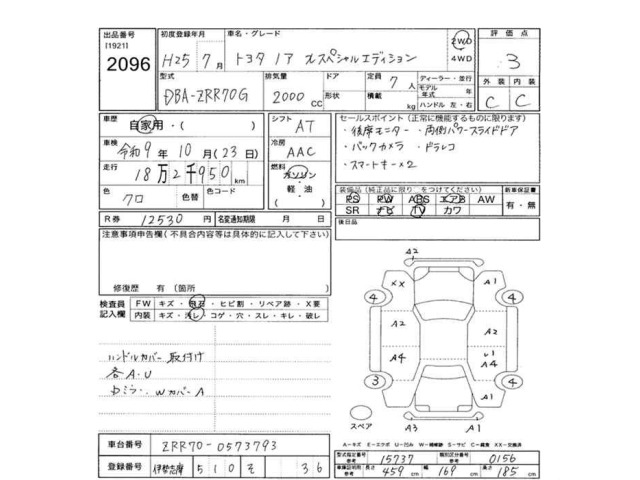 出品番号
[1921]
2096
初度登録年月
H25年7月
車名・グレード
トヨタ ノア スペシャルエディション
2WD
4WD
評価点
3
型式
DBA-ZRR70G
排気量
2000 CC
ドア
形状
定員 7 人
積載 kg
ディーラー・並行
モデル年式 年
ハンドル 左・右
外装 内装
C C
車歴
自家用・( )
車検
令和9年10月(23日)
走行
18万2千950km
色
クロ
色替
色コード
シフト
AT
冷房
AAC
燃料
ガソリン
軽油
( )
セールスポイント(正常に機能するものに限ります)
・後席モニター ・両側パワースライドドア
・バックカメラ ・ドラレコ
・スマートキー×2
装備品(純正品に限り○をつけてください)
PS PW ABS エアB AW
SR ナビ TV カワ
新車保証書
有・無
R券 12530円
名変通知期限 月 日
後日品
注意事項申告欄(不具合内容等は具体的に記入して下さい)
修復歴 有(箇所 )
検査員記入欄
FW キズ・飛石・ヒビ割・リペア跡・X要
内装 キズ・汚レ・コゲ・穴・スレ・キレ・破レ
ハンドルカバー取付け
各A・U
Dミラー・Wカバー A
A2
XX A1
4 4
A2 A2
A4 U1
A4
3 4
A1
スペア A3 A1
A-キズ E-エクボ U-凹み W-補修跡 S-サビ C-腐食 XX-交換済
車台番号 ZRR70-0573793
登録番号 伊勢志摩 510 そ 36
型式指定番号 参考 15737
類別区分番号 参考 0156
車検証明用 参考 長さ 459cm 幅 169cm 高さ 185cm